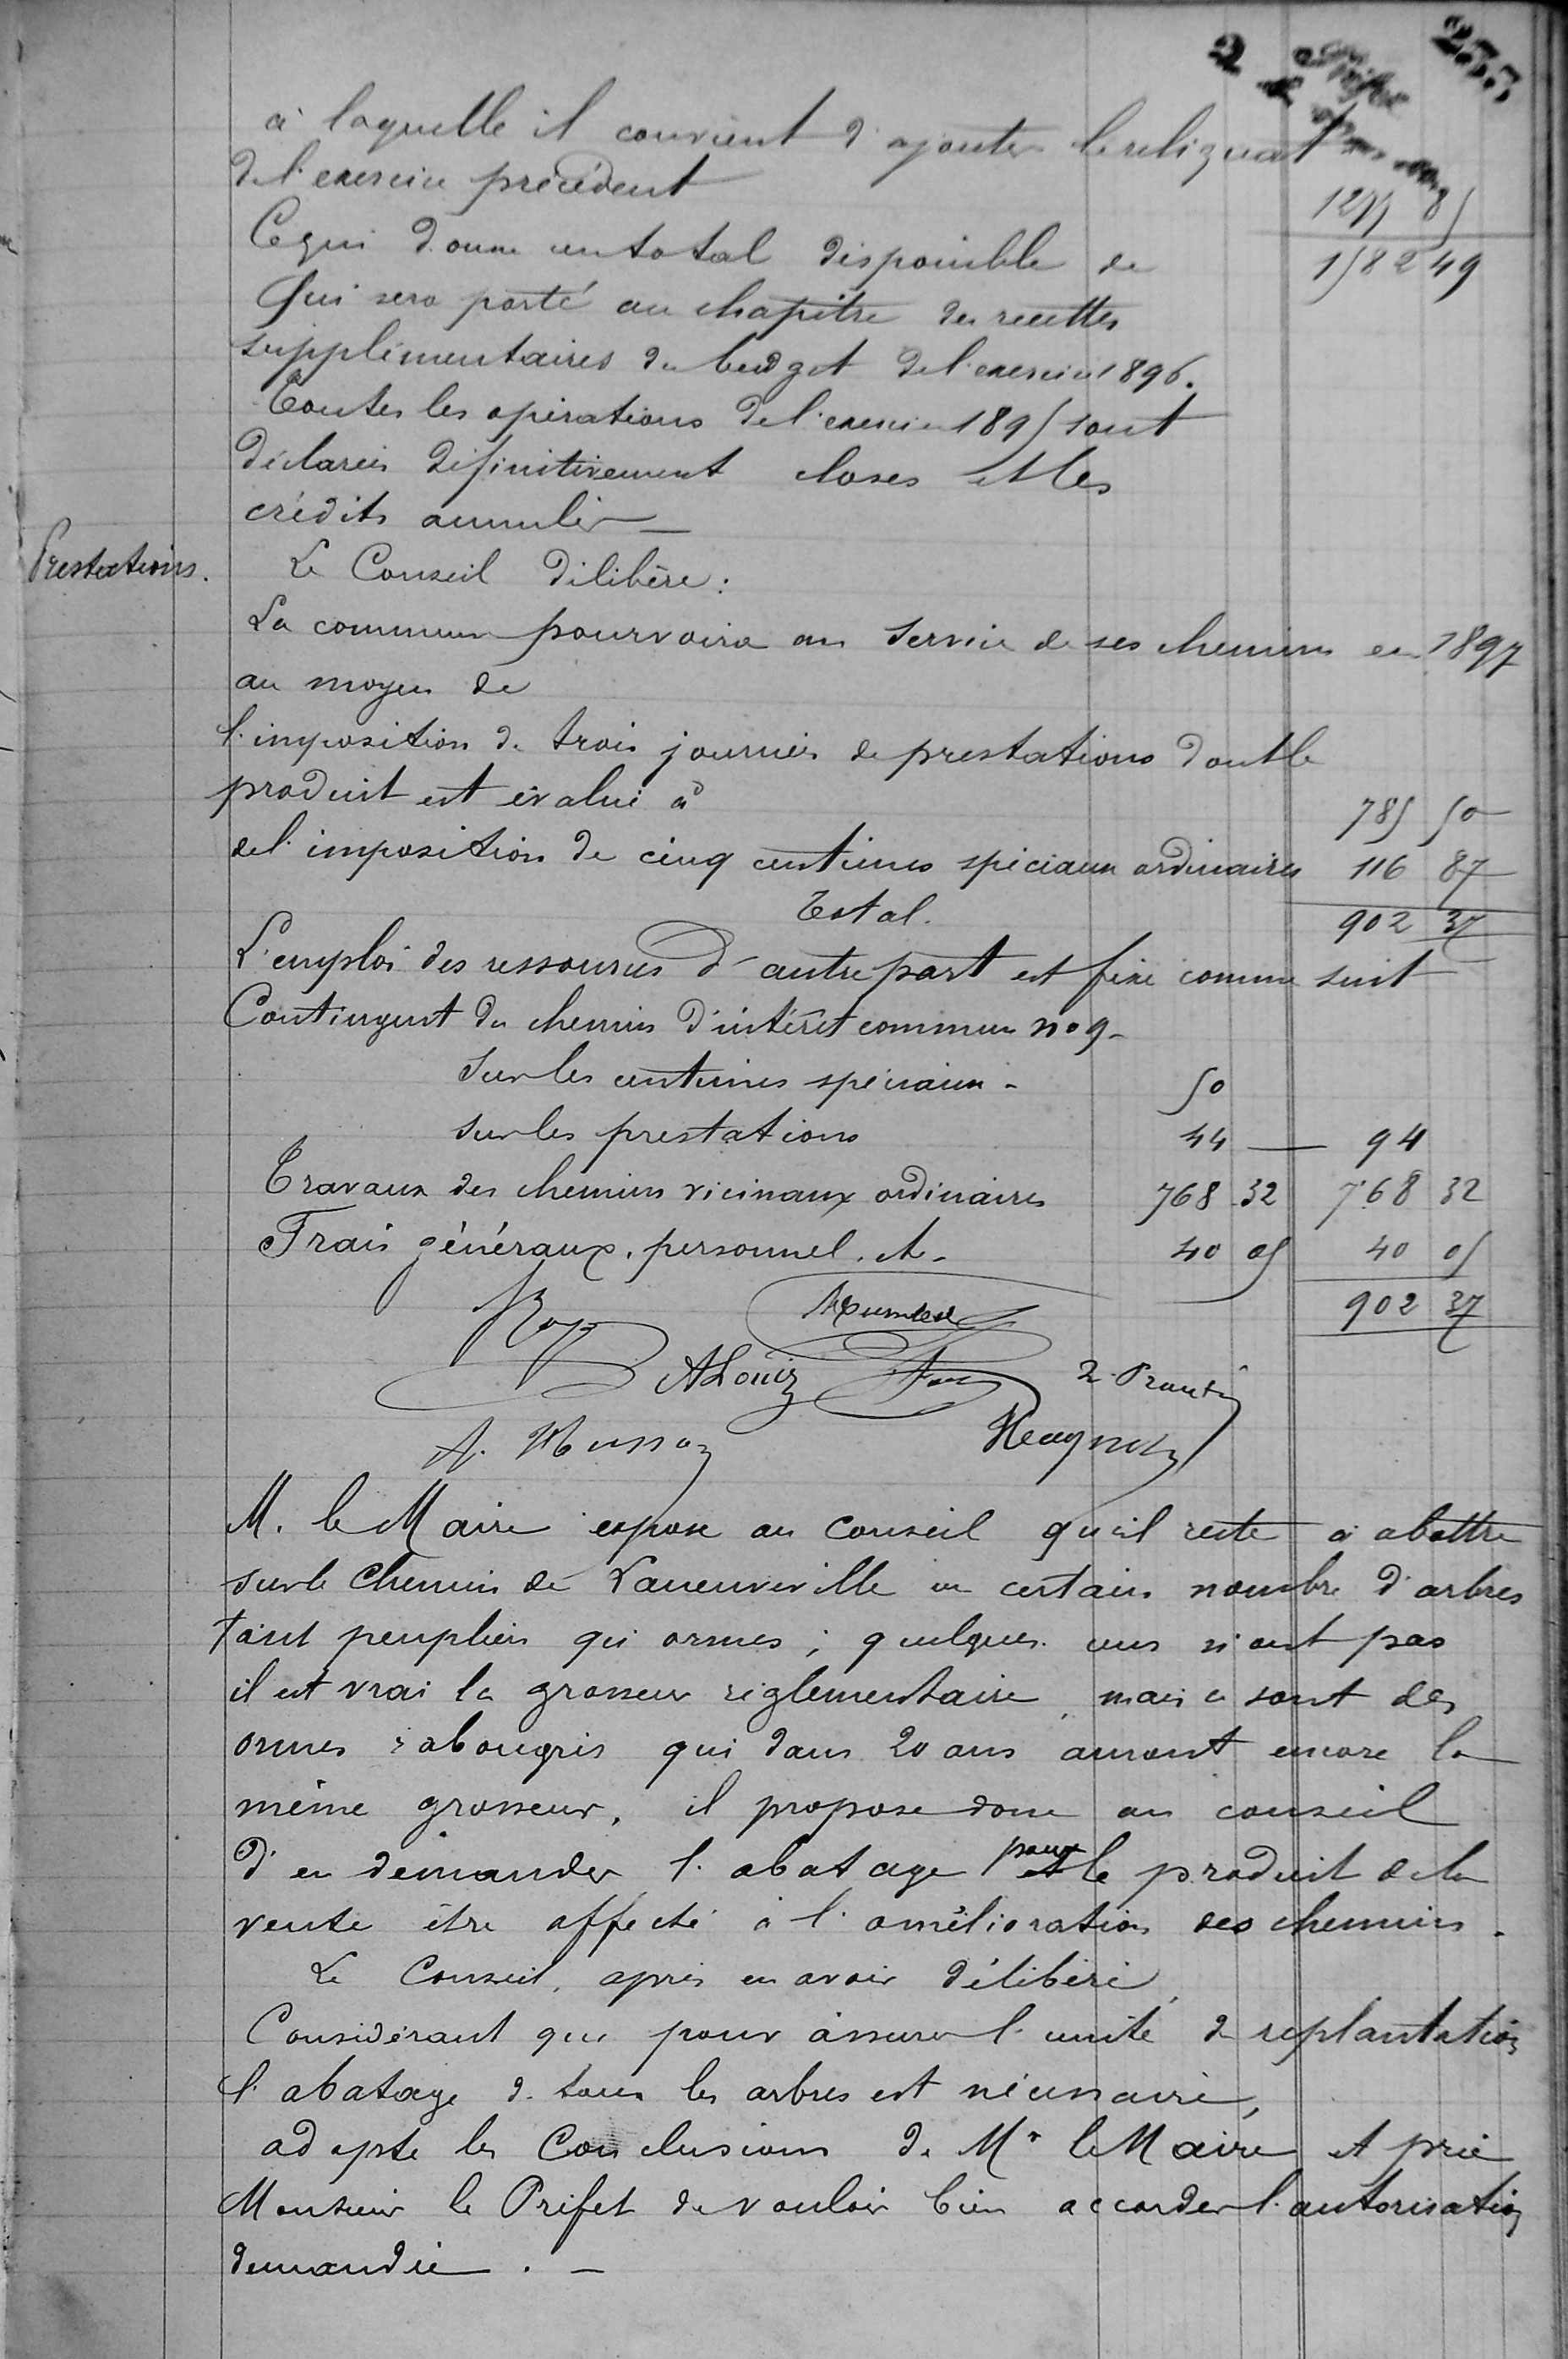 255
à laquelle il convient d'ajouter le reliquat
de l'exercice précédent 1255 85
Ce qui donne un total disponible de 1582 49
Qui sera porté au chapitre des recettes
supplémentaires du budget de l'exercice 1896.
Toutes les opérations de l'exercice 1895 sont
déclarées définitivement closes et les
crédits annulés —
Prestations. Le Conseil délibère :
La commune pourvoira au service de ses chemins en 1897
au moyen de
l'imposition de trois journées de prestations dont le
produit est évalué à 785 50
de l'imposition de cinq centimes spéciaux ordinaires 116 87
Total. 902 37
L'emploi des ressources d'autre part est fixé comme suit
Contingent du chemin d'intérêt commun no 9 -
sur les centimes spéciaux - 50
sur les prestations 44 — 94
Travaux des chemins vicinaux ordinaires 768 32 768 32
Frais généraux, personnel, etc. 40 05 40 05
902 37
Roy
A Louis
A. Musson
M. le Maire expose au conseil qu'il reste à abattre
sur le chemin de Laneuveville un certain nombre d'arbres
tant peupliers qu'ormes ; quelques uns n'ont pas
il est vrai la grosseur réglementaire, mais ce sont des
ormes rabougris qui dans 20 ans auront encore la
même grosseur, il propose donc au conseil
d'en demander l'abatage pour le produit de la
vente être affecté à l'amélioration des chemins.
Le Conseil, après en avoir délibéré,
Considérant que pour assurer l'unité de replantation
l'abatage de tous les arbres est nécessaire,
adopte les Conclusions de Mr le Maire et prie
Monsieur le Préfet de vouloir bien accorder l'autorisation
demandée. —